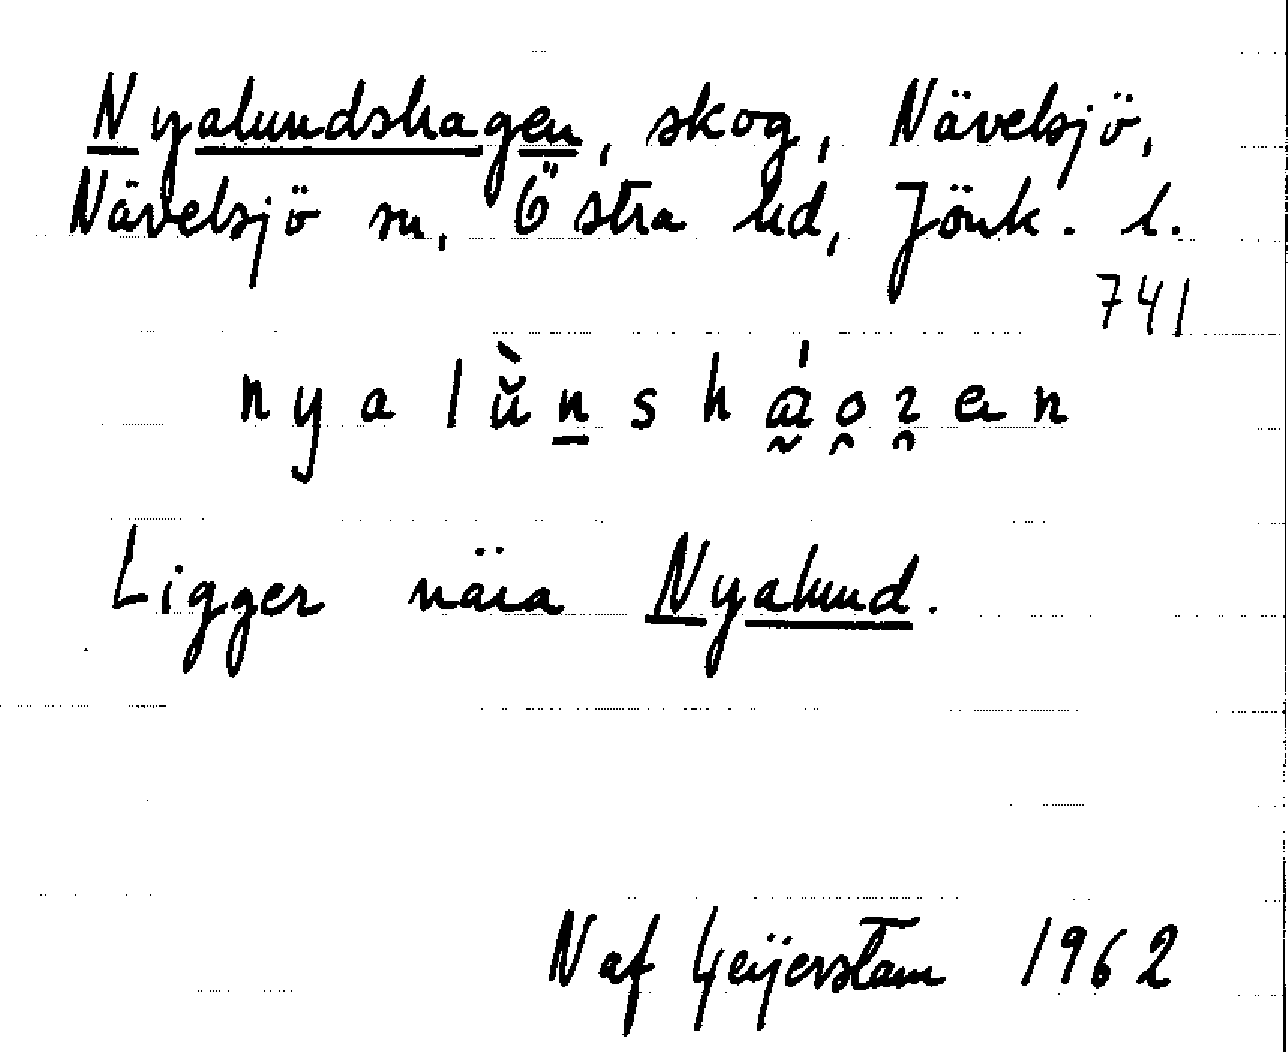 Nyalundshagen, skog, Nävelsjö,
Nävelsjö sn, Östra hd, Jönk. l.
741
nyalǜn̲shá̰o̯ɂ̯en
Ligger nära Nyalund.
N af Geijerstam 1962